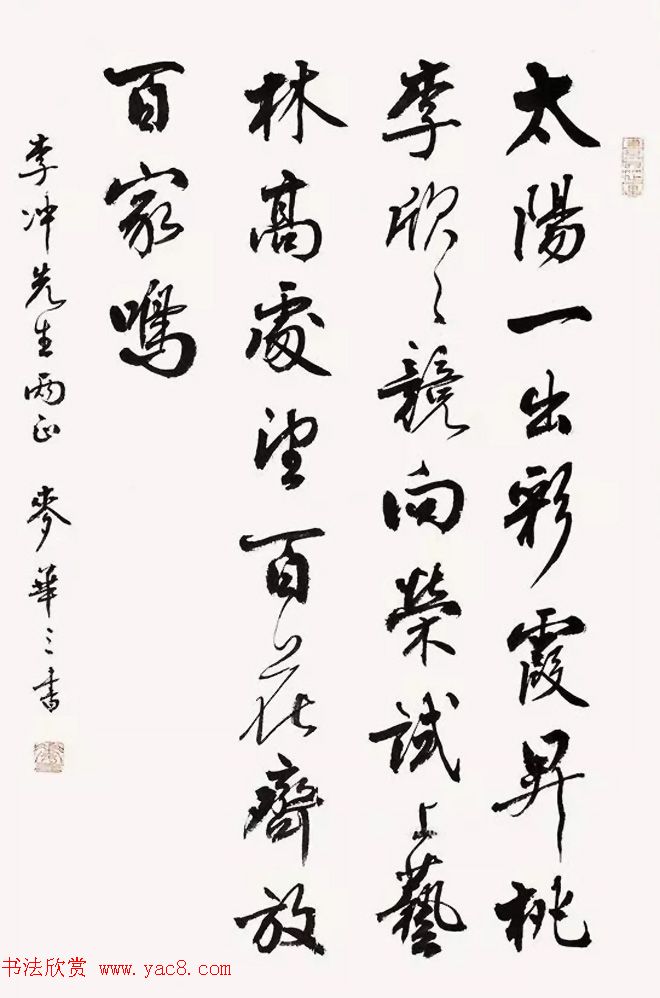 太陽一出彩霞昇桃
李欣々競向榮試上藝
林高處望百花齊放
百家鳴
李冲先生两正 麥華三書
书法欣赏 www.yac8.com